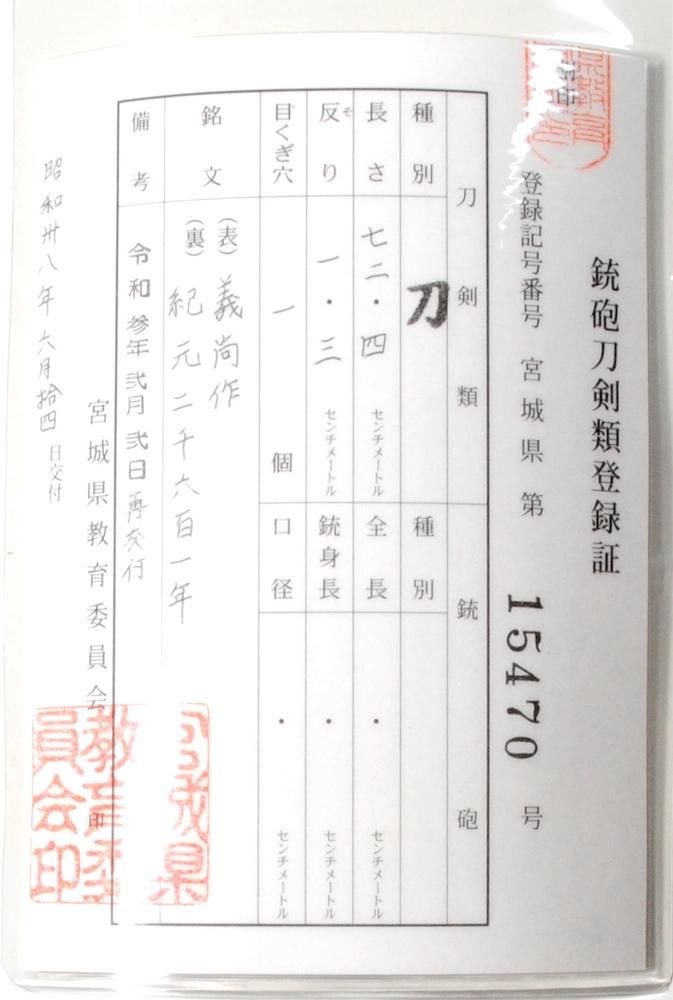 銃砲刀剣類登録証
登録記号番号 宮城県 第 15470 号
刀剣類
銃砲
種別 刀
種別
長さ 七二・四 センチメートル
全長 ・ センチメートル
反り 一・三 センチメートル
そ
銃身長 ・ センチメートル
目くぎ穴 一 個
口径 ・ センチメートル
銘文
(表) 義尚作
(裏) 紀元二千六百一年
備考 令和参年弐月弐日再交付
宮城県教育委員会 印
昭和卅八年六月拾四日交付
宮城県
教育委
員会印